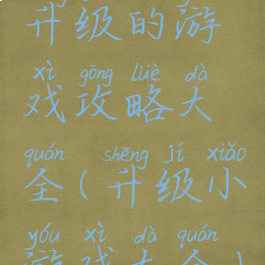 升级的游
xì gōng lüè dà
戏攻略大
quán shēng jí xiǎo
全(升级小
yóu xì dà quán
游戏大全)